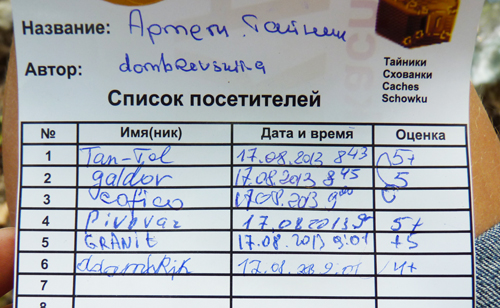 Название: Артем. Тайник
Автор: dombrevskira
Тайники
Схованки
Caches
Schowku
Список посетителей
№ Имя(ник) Дата и время Оценка
1 Tan-Tol 17.08.2013 8 43 5+
2 galdor 17.08.2013 8 45 5
3 17.08.2013 9 00
4 Pivovar 17.08.2013 5+
5 GRANIT 17.08.2013 9:01 +5
6 4+
7
8